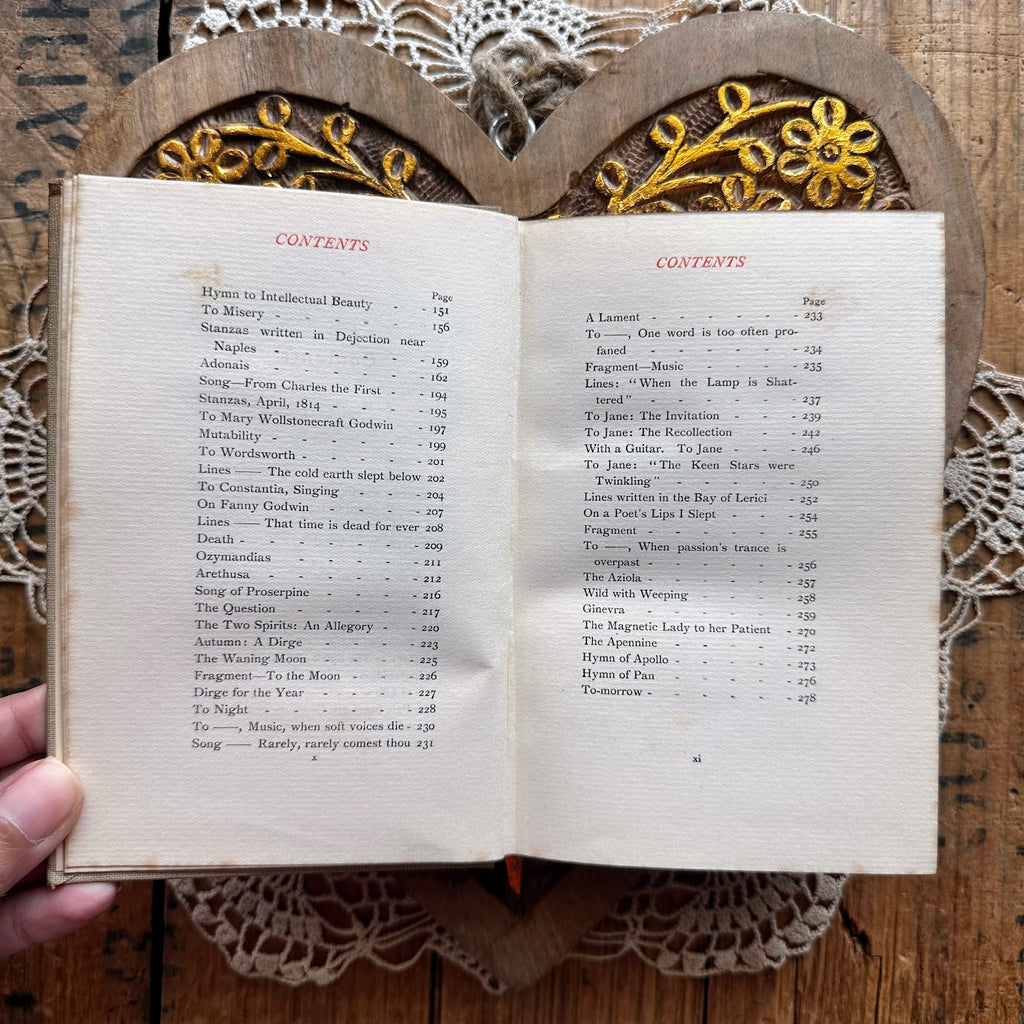 CONTENTS
Page
Hymn to Intellectual Beauty - - 151
To Misery - - - - - 156
Stanzas written in Dejection near
Naples - - - - - 159
Adonais - - - - - - 162
Song—From Charles the First - - 194
Stanzas, April, 1814 - - - - 195
To Mary Wollstonecraft Godwin - 197
Mutability - - - - - 199
To Wordsworth - - - - - 201
Lines —— The cold earth slept below 202
To Constantia, Singing - - - 204
On Fanny Godwin - - - - 207
Lines —— That time is dead for ever 208
Death - - - - - - 209
Ozymandias - - - - - 211
Arethusa - - - - - 212
Song of Proserpine - - - - 216
The Question - - - - - 217
The Two Spirits: An Allegory - - 220
Autumn: A Dirge - - - - 223
The Waning Moon - - - - 225
Fragment—To the Moon - - - 226
Dirge for the Year - - - - 227
To Night - - - - - - 228
To ——, Music, when soft voices die - 230
Song —— Rarely, rarely comest thou 231
x
CONTENTS
Page
A Lament - - - - - - 233
To ——, One word is too often pro-
faned - - - - - - 234
Fragment—Music - - - - 235
Lines: "When the Lamp is Shat-
tered" - - - - - - 237
To Jane: The Invitation - - - 239
To Jane: The Recollection - - - 242
With a Guitar. To Jane - - - 246
To Jane: "The Keen Stars were
Twinkling" - - - - - 250
Lines written in the Bay of Lerici - 252
On a Poet's Lips I Slept - - - 254
Fragment - - - - - - 255
To ——, When passion's trance is
overpast - - - - - - 256
The Aziola - - - - - - 257
Wild with Weeping - - - - 258
Ginevra - - - - - - 259
The Magnetic Lady to her Patient - 270
The Apennine - - - - - 272
Hymn of Apollo - - - - - 273
Hymn of Pan - - - - - 276
To-morrow - - - - - - 278
xi